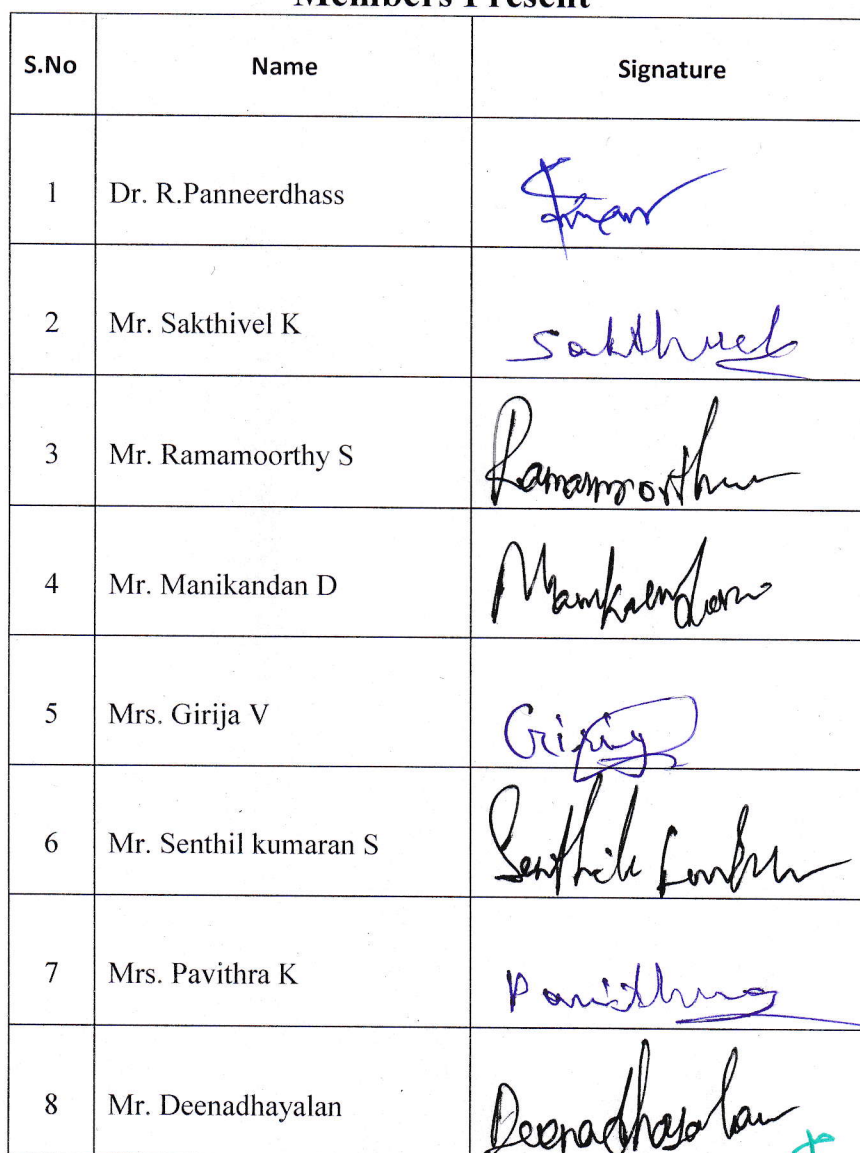 Members Present
S.No Name Signature
1 Dr. R.Panneerdhass
2 Mr. Sakthivel K Sakthivel
3 Mr. Ramamoorthy S Ramamoorthy
4 Mr. Manikandan D Manikandan
5 Mrs. Girija V Girija
6 Mr. Senthil kumaran S Senthil
7 Mrs. Pavithra K Pavithra
8 Mr. Deenadhayalan Deenadhayalan